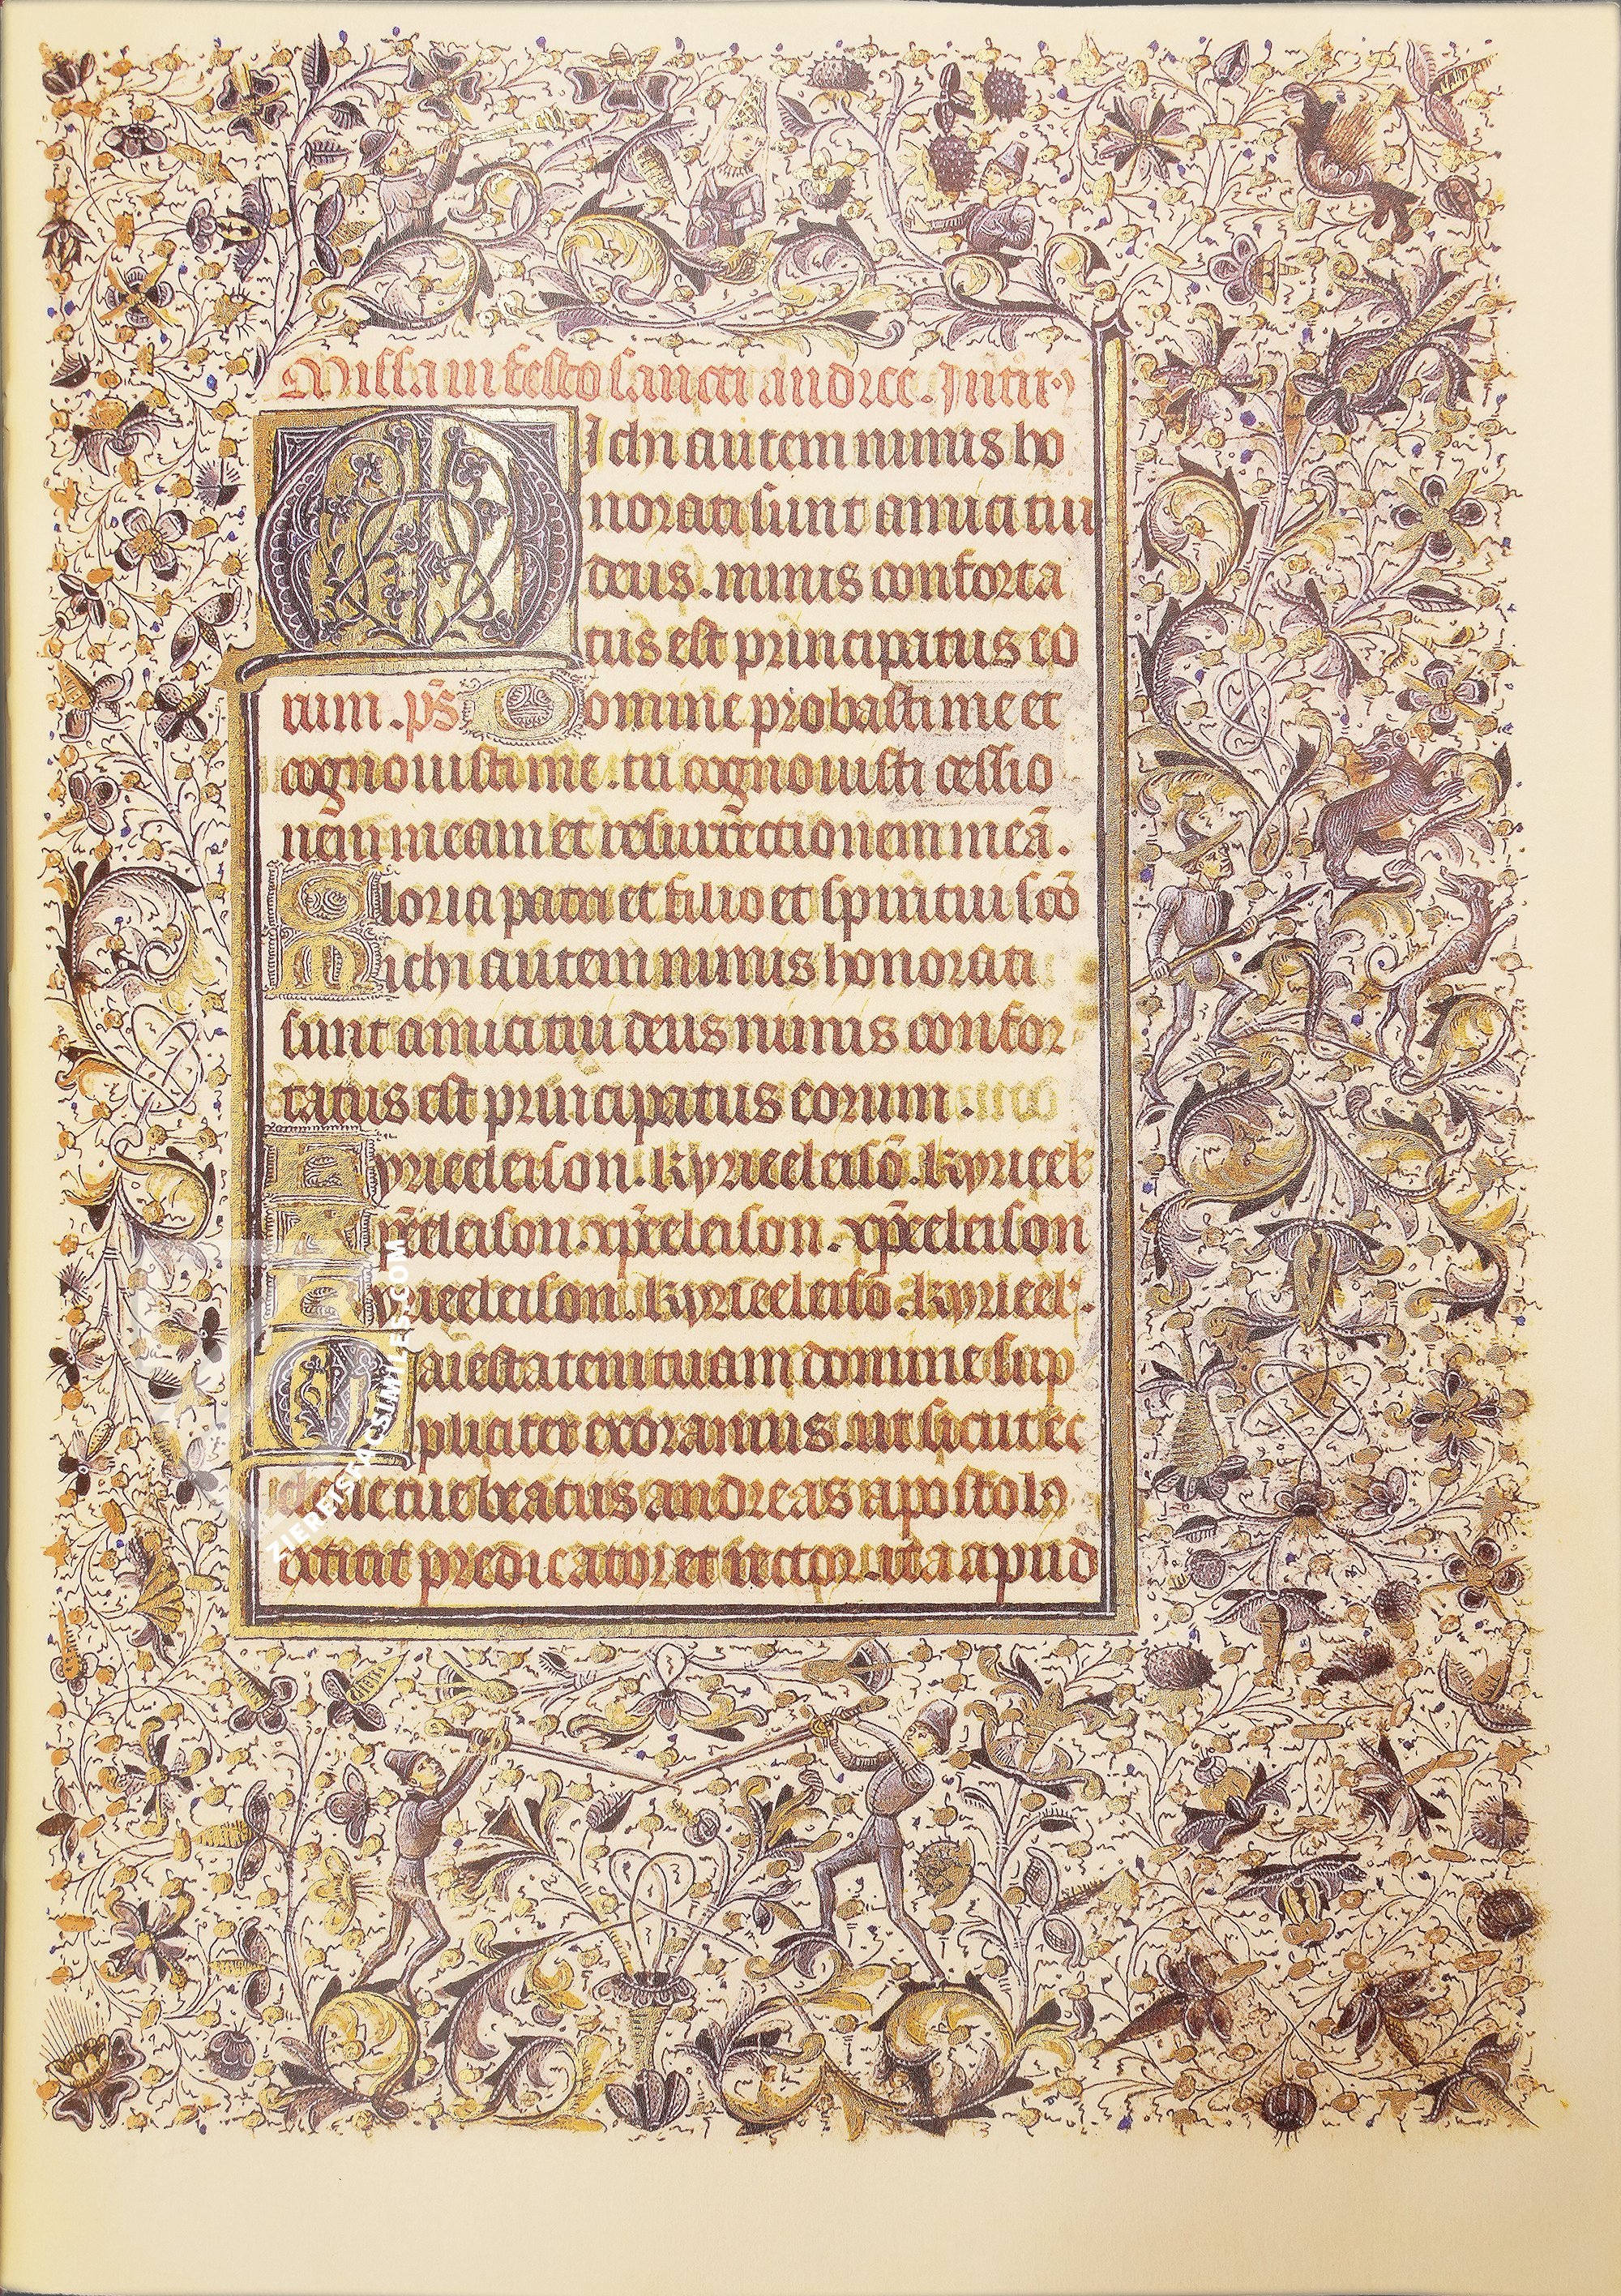 Missa in festo sancti andree. Jntit9
MIchi autem nimis ho
norati sunt amici tui
deus. nimis conforta
tus est principatus eo
rum. ps̄ Domine probasti me et
cognouisti me. tu cognouisti cessio
nem meam et resurrectionem meā.
Gloria patri et filio et spiritui scō
Michi autem nimis honorati
sunt amici tui deus nimis confor
tatus est principatus eorum.
Kyrieeleison. kyrieeleisō. kyrieel'
xp̄eeleison. xp̄eeleison. xp̄eeleison
Kyrieeleison. kyrieeleisō. kyrieel'.
Maiestatem tuam domine sup
pliciter exoramus. ut sicut ec
clesie tue beatus andreas apostol9
extitit predicator et rector. ita apud
ZIEREISFACSIMILES.COM